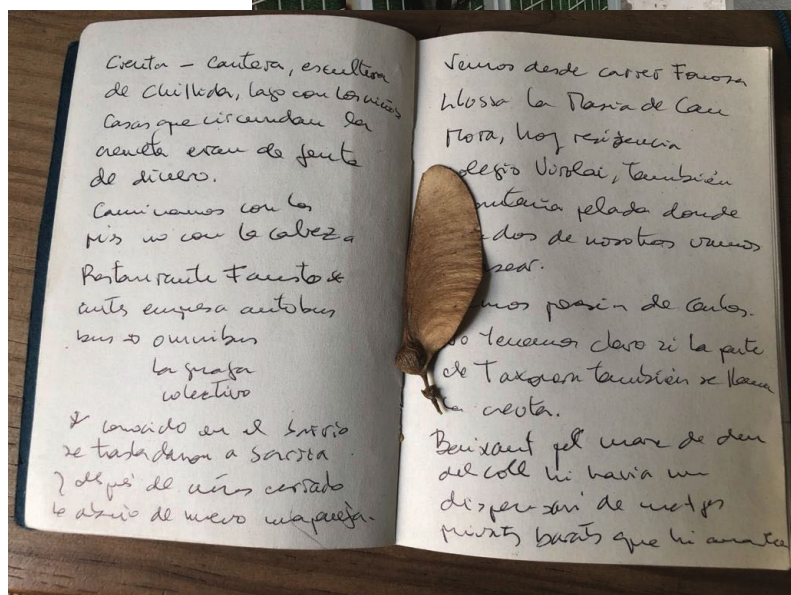 Creueta – Cantera, escultura
de Chillida, lago con los niños
Casas que circundan la
creueta eran de gente
de dinero.
Caminamos con los
pies no con la cabeza
Restaurante Fausto *
antes empresa autobus
bus → omnibus
la guagua
colectivo
* conocido en el barrio
se trasladaron a Sarria
y después de años cerrado
lo abrio de nuevo una pareja.
Vemos desde carrer
la Masia de Can
Mora, hoy residencia
colegio Virolai, también
montaña pelada donde
dos de nosotros vamos
a pasear.
poesia de Carlos.
No tenemos claro si la parte
de también se llama
la creueta.
Baixant pel mare de deu
del coll hi havia un
dispensari de metges
privats barats que hi